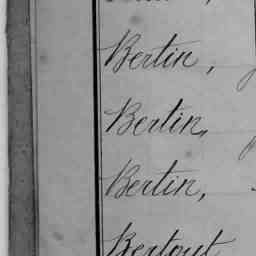 Bertin,
Bertin,
Bertin,
Bertout